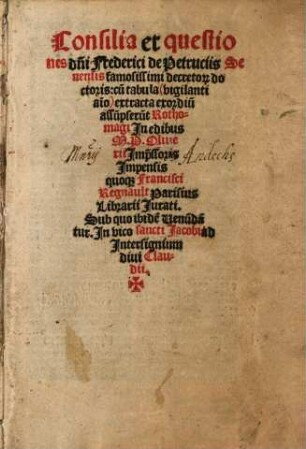 Consilia et questio
nes dñi Frederici de Petruciis Se
nensis famosissimi decretoꝝ do
ctoris: cũ tabula (vigilanti
aĩo) extracta exordiũ
assũpserũt Rotho
magi In edibus
M. P. Oliue
rii Imp̃ssoris
Impensis
quoqꝫ Francisci
Regnault Parisius
Librarii Jurati.
Sub quo ibidẽ Venũdã
tur. In vico sancti Jacobi ad
Intersignium
diui Clau
dii.
Andechs